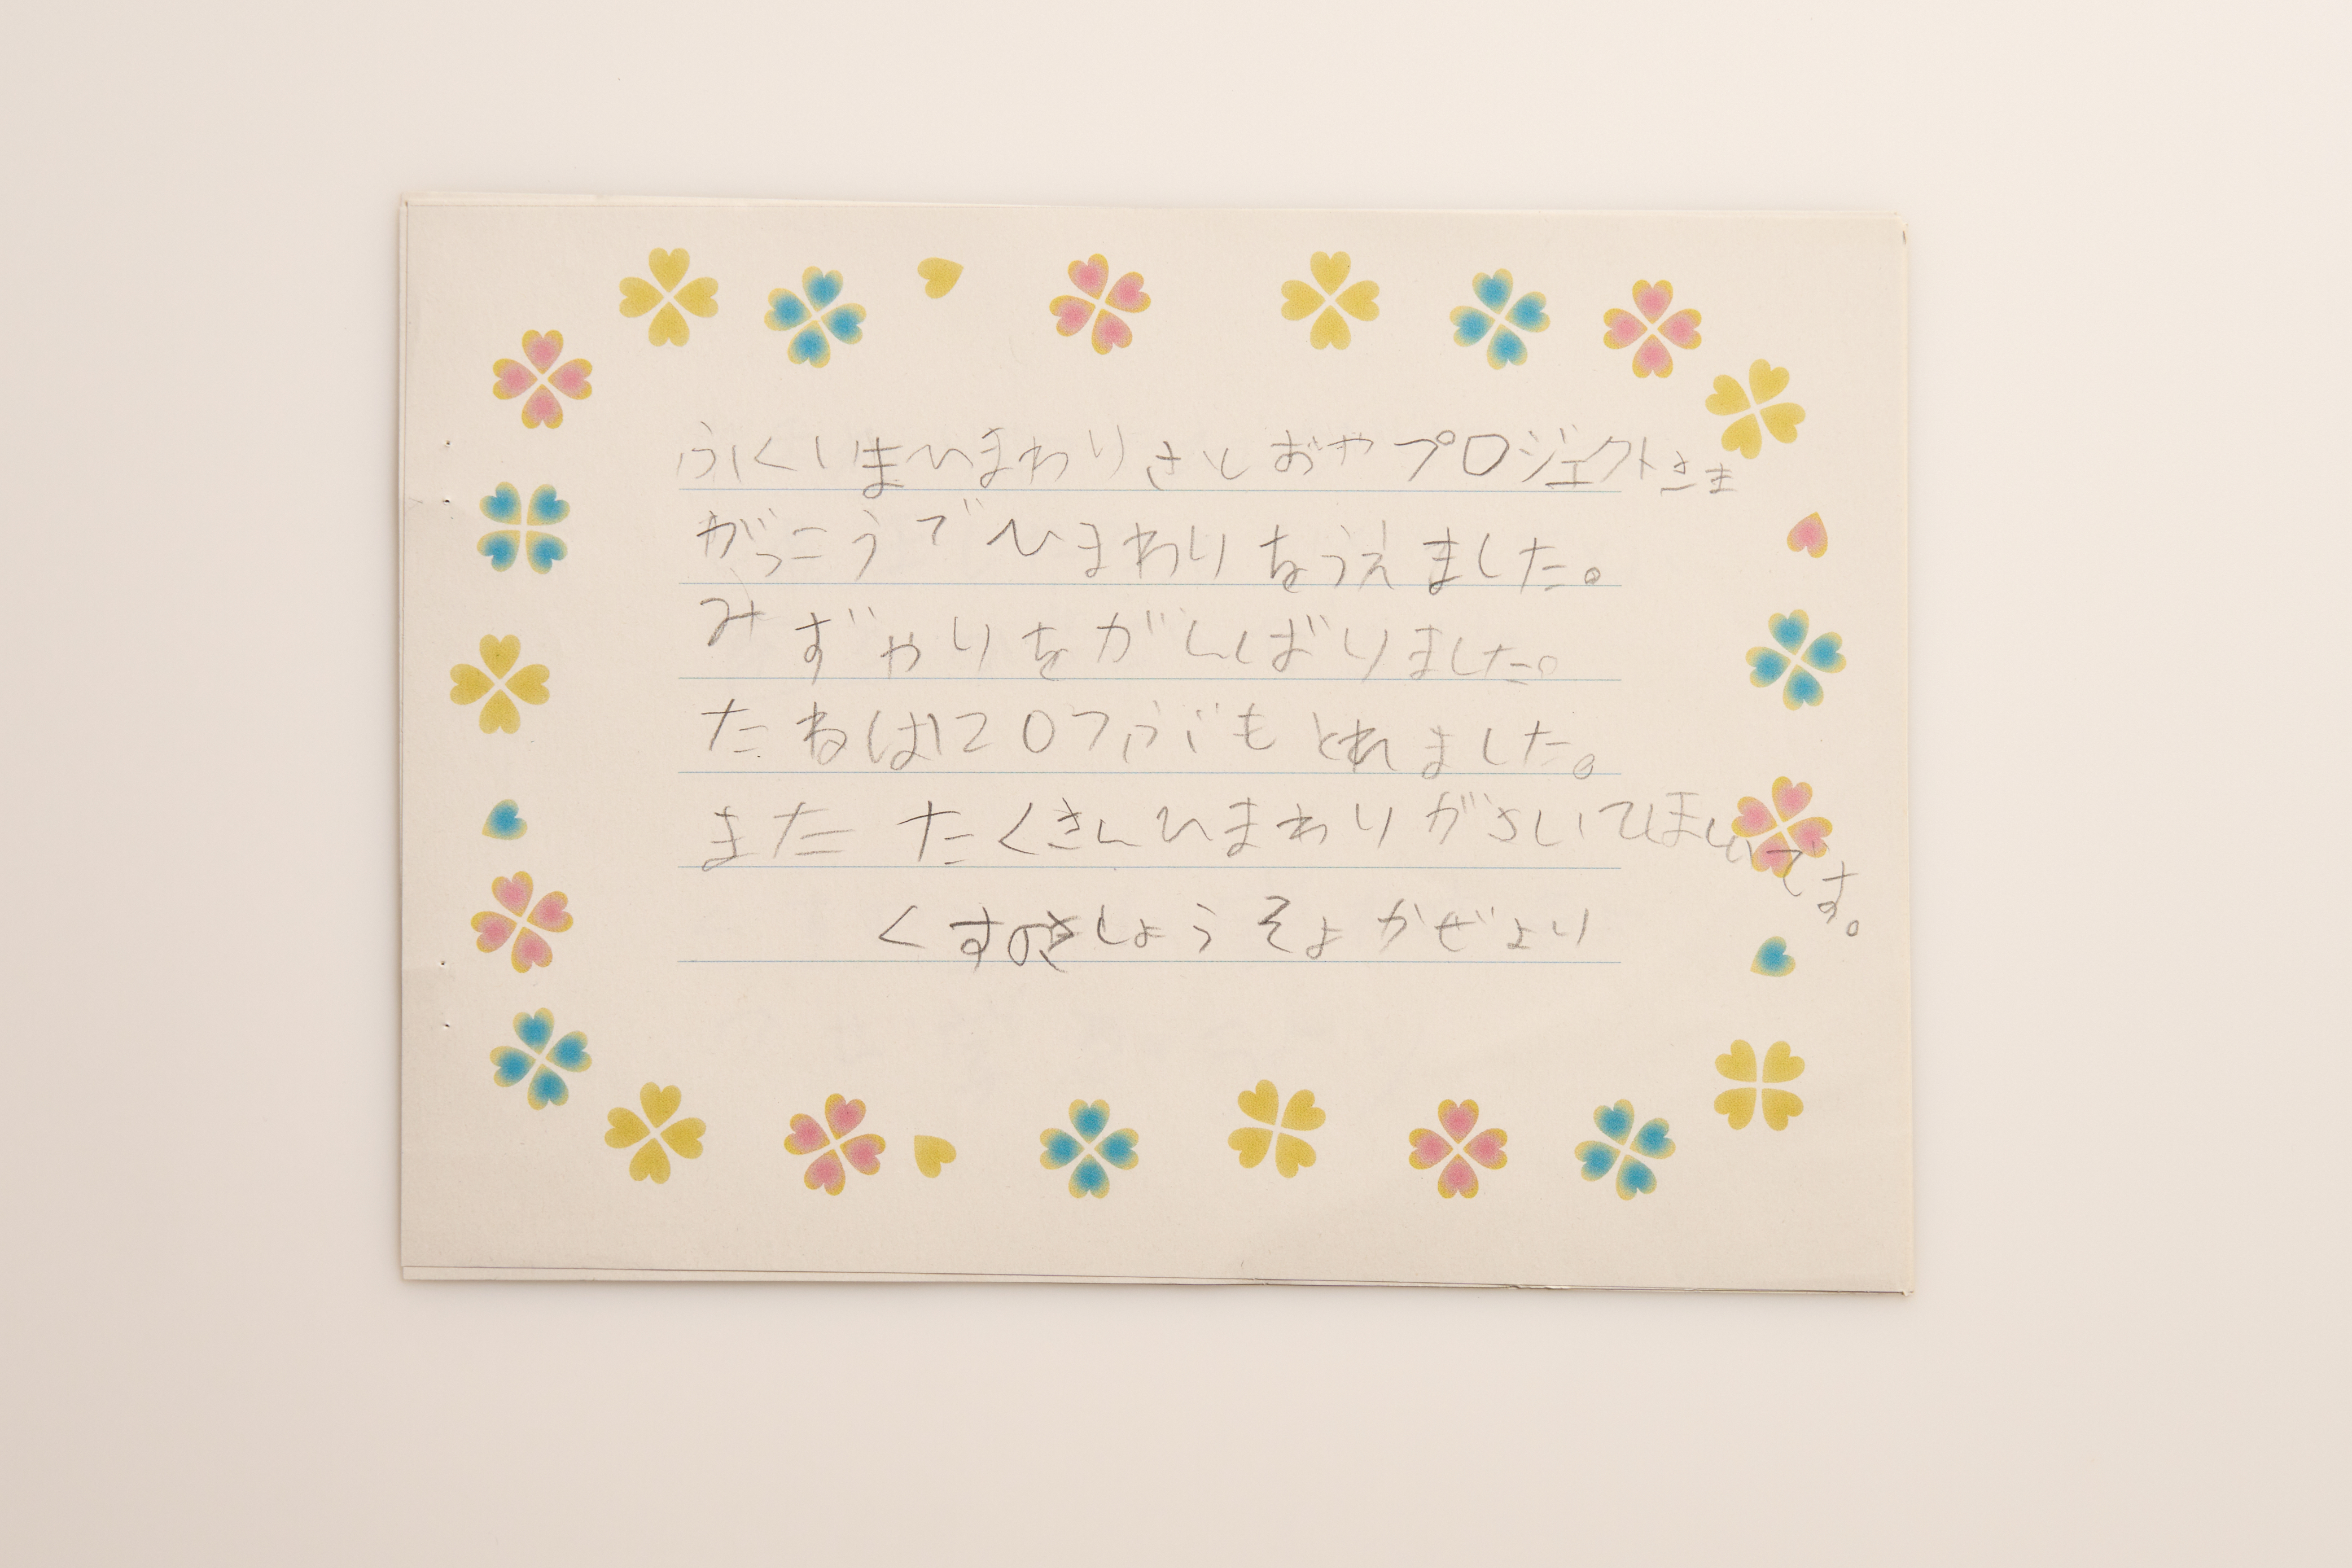 ふくしまひまわりさとおやプロジェクトさま
がっこうでひまわりをうえました。
みずやりをがんばりました。
たねは1207ぶもとれました。
また たくさんひまわりがさいてほしいです。
くすのきしょう そよかぜより